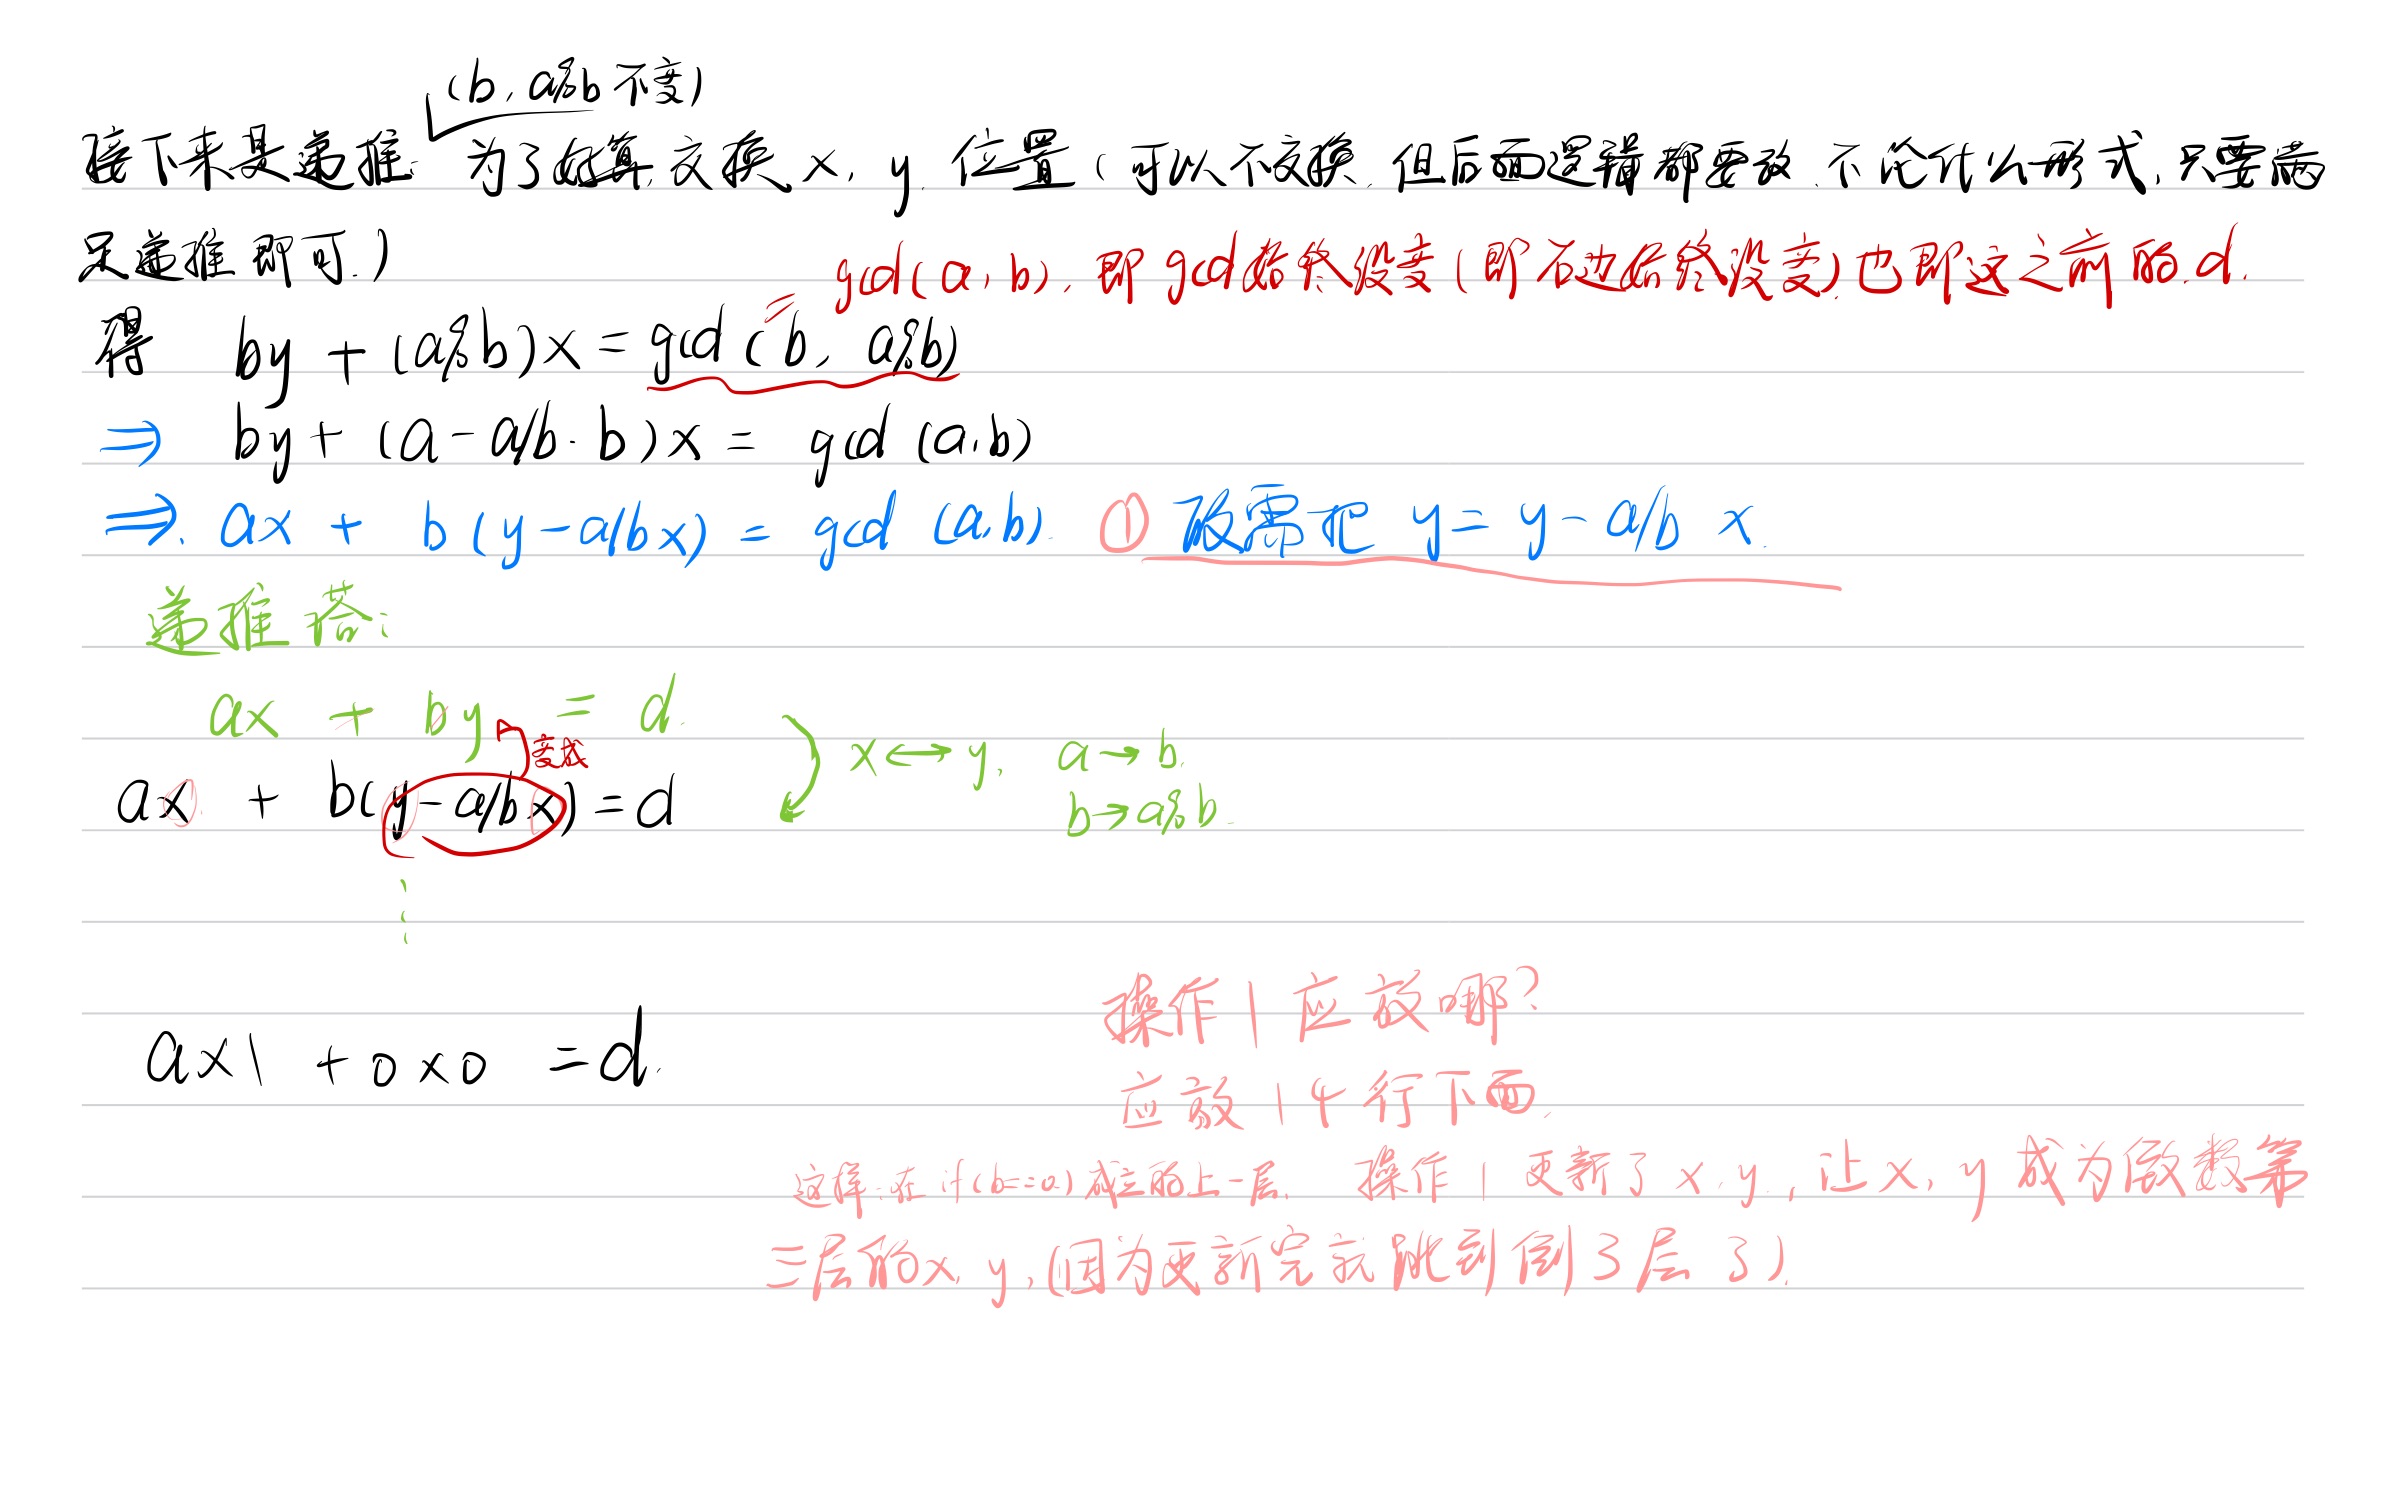 (b, a%b 不变)
接下来是递推: 为了好算,交换 x, y 位置(可以不交换,但后面逻辑都要改,不论什么形式,只要满
足递推即可.)
gcd(a, b), 即gcd始终没变(即右边始终没变)也即这之前的d.
得 by + (a%b)x = gcd(b, a%b)
⇒ by + (a - a/b · b)x = gcd(a,b)
⇒ ax + b(y - a/bx) = gcd(a,b). ① 故需把 y = y - a/b x.
递推塔:
ax + by = d.
变成
x ↔ y, a → b.
ax + b(y - a/bx) = d
b → a%b.
⋮
操作1应放哪?
a×1 + 0×0 = d.
应放14行下面.
这样,在if(b==0)成立的上一层, 操作1更新了x,y,让x,y成为倒数第
三层的x,y,(因为更新完就跳到倒3层了).